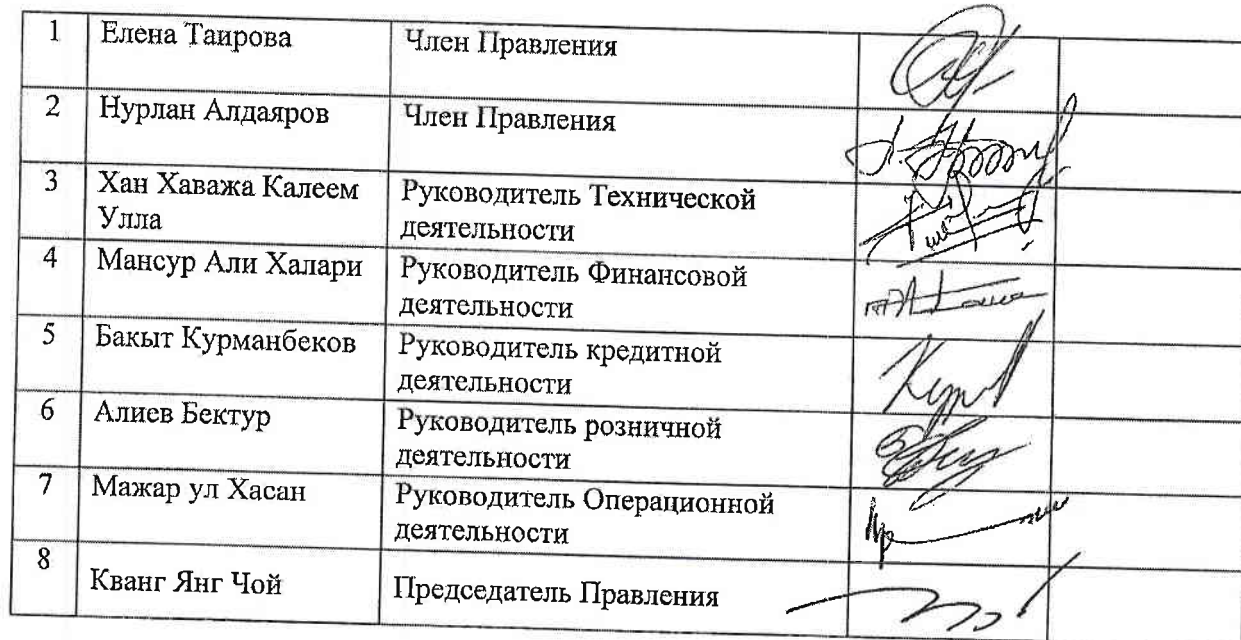 1 Елена Таирова Член Правления
2 Нурлан Алдаяров Член Правления
3 Хан Хаважа Калеем Руководитель Технической
Улла деятельности
4 Мансур Али Халари Руководитель Финансовой
деятельности
5 Бакыт Курманбеков Руководитель кредитной
деятельности
6 Алиев Бектур Руководитель розничной
деятельности
7 Мажар ул Хасан Руководитель Операционной
деятельности
8 Кванг Янг Чой Председатель Правления